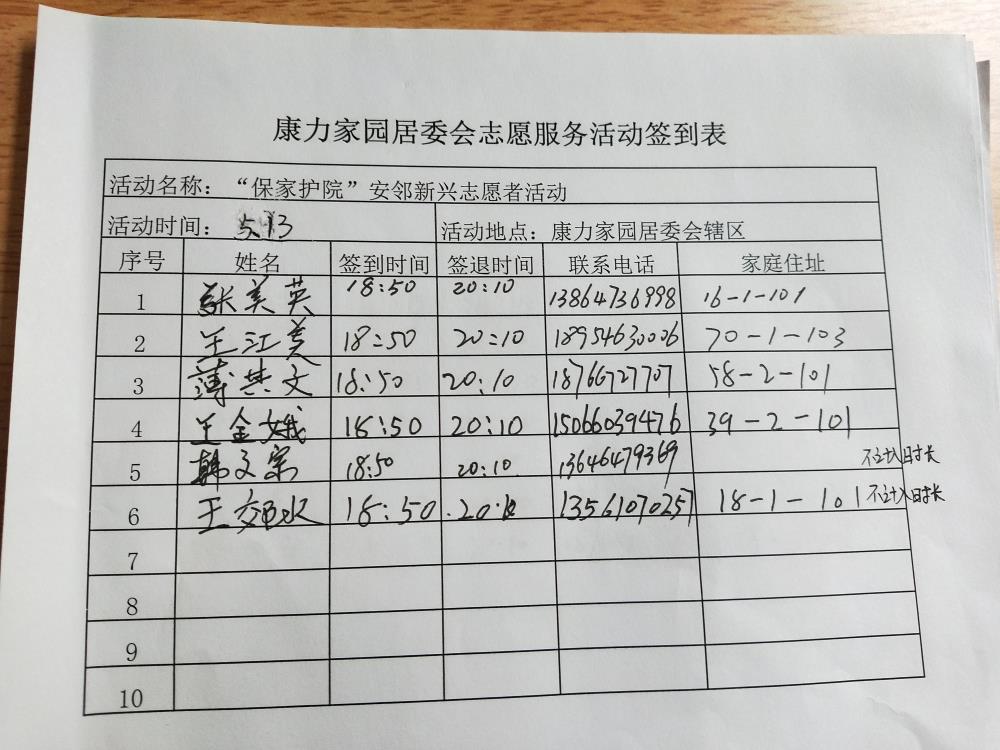 康力家园居委会志愿服务活动签到表
活动名称：“保家护院”安邻新兴志愿者活动
活动时间：5.13 活动地点：康力家园居委会辖区
序号 姓名 签到时间 签退时间 联系电话 家庭住址
1 张美英 18:50 20:10 13864736998 16-1-101
2 王江美 18:50 20:10 18954630006 70-1-103
3 薄其文 18:50 20:10 18766727707 58-2-101
4 王金娥 18:50 20:10 15066039476 39-2-101
5 韩文宗 18:50 20:10 13646479369 不计入时长
6 王 18:50 20:10 13561070257 18-1-101 不计入时长
7
8
9
10